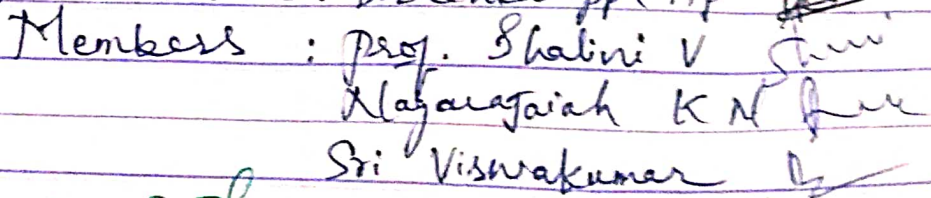 Members : Prof. Shalini V
Nagarajaiah K N
Sri Viswakumar